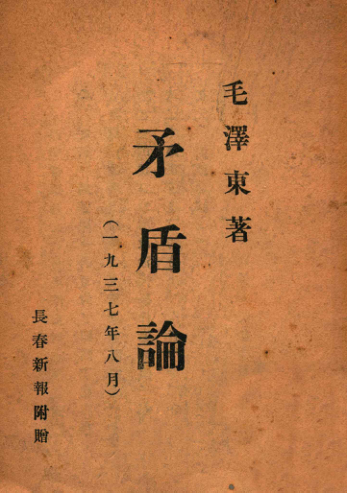 毛澤東著
矛盾論
(一九三七年八月)
長春新報附贈